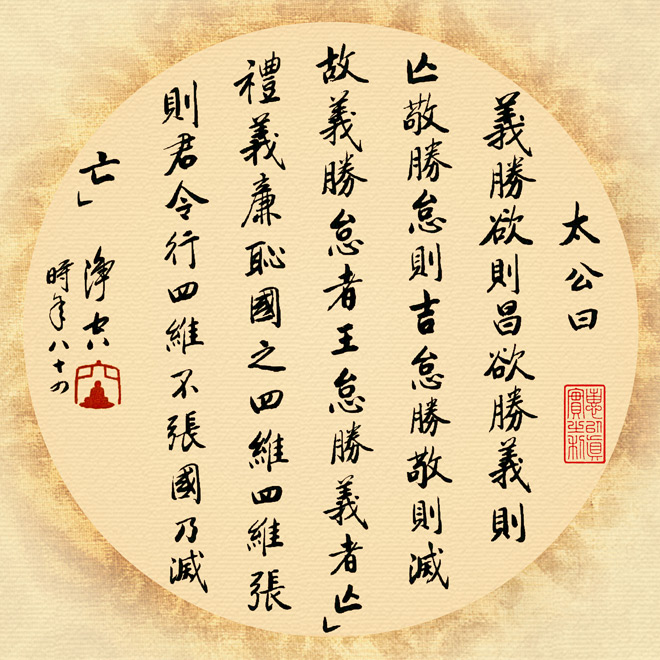 太公曰
義勝欲則昌欲勝義則
亾敬勝怠則吉怠勝敬則滅
故義勝怠者王怠勝義者亾」
禮義廉恥國之四維四維張
則君令行四維不張國乃滅
亡」
淨空
時年八十四